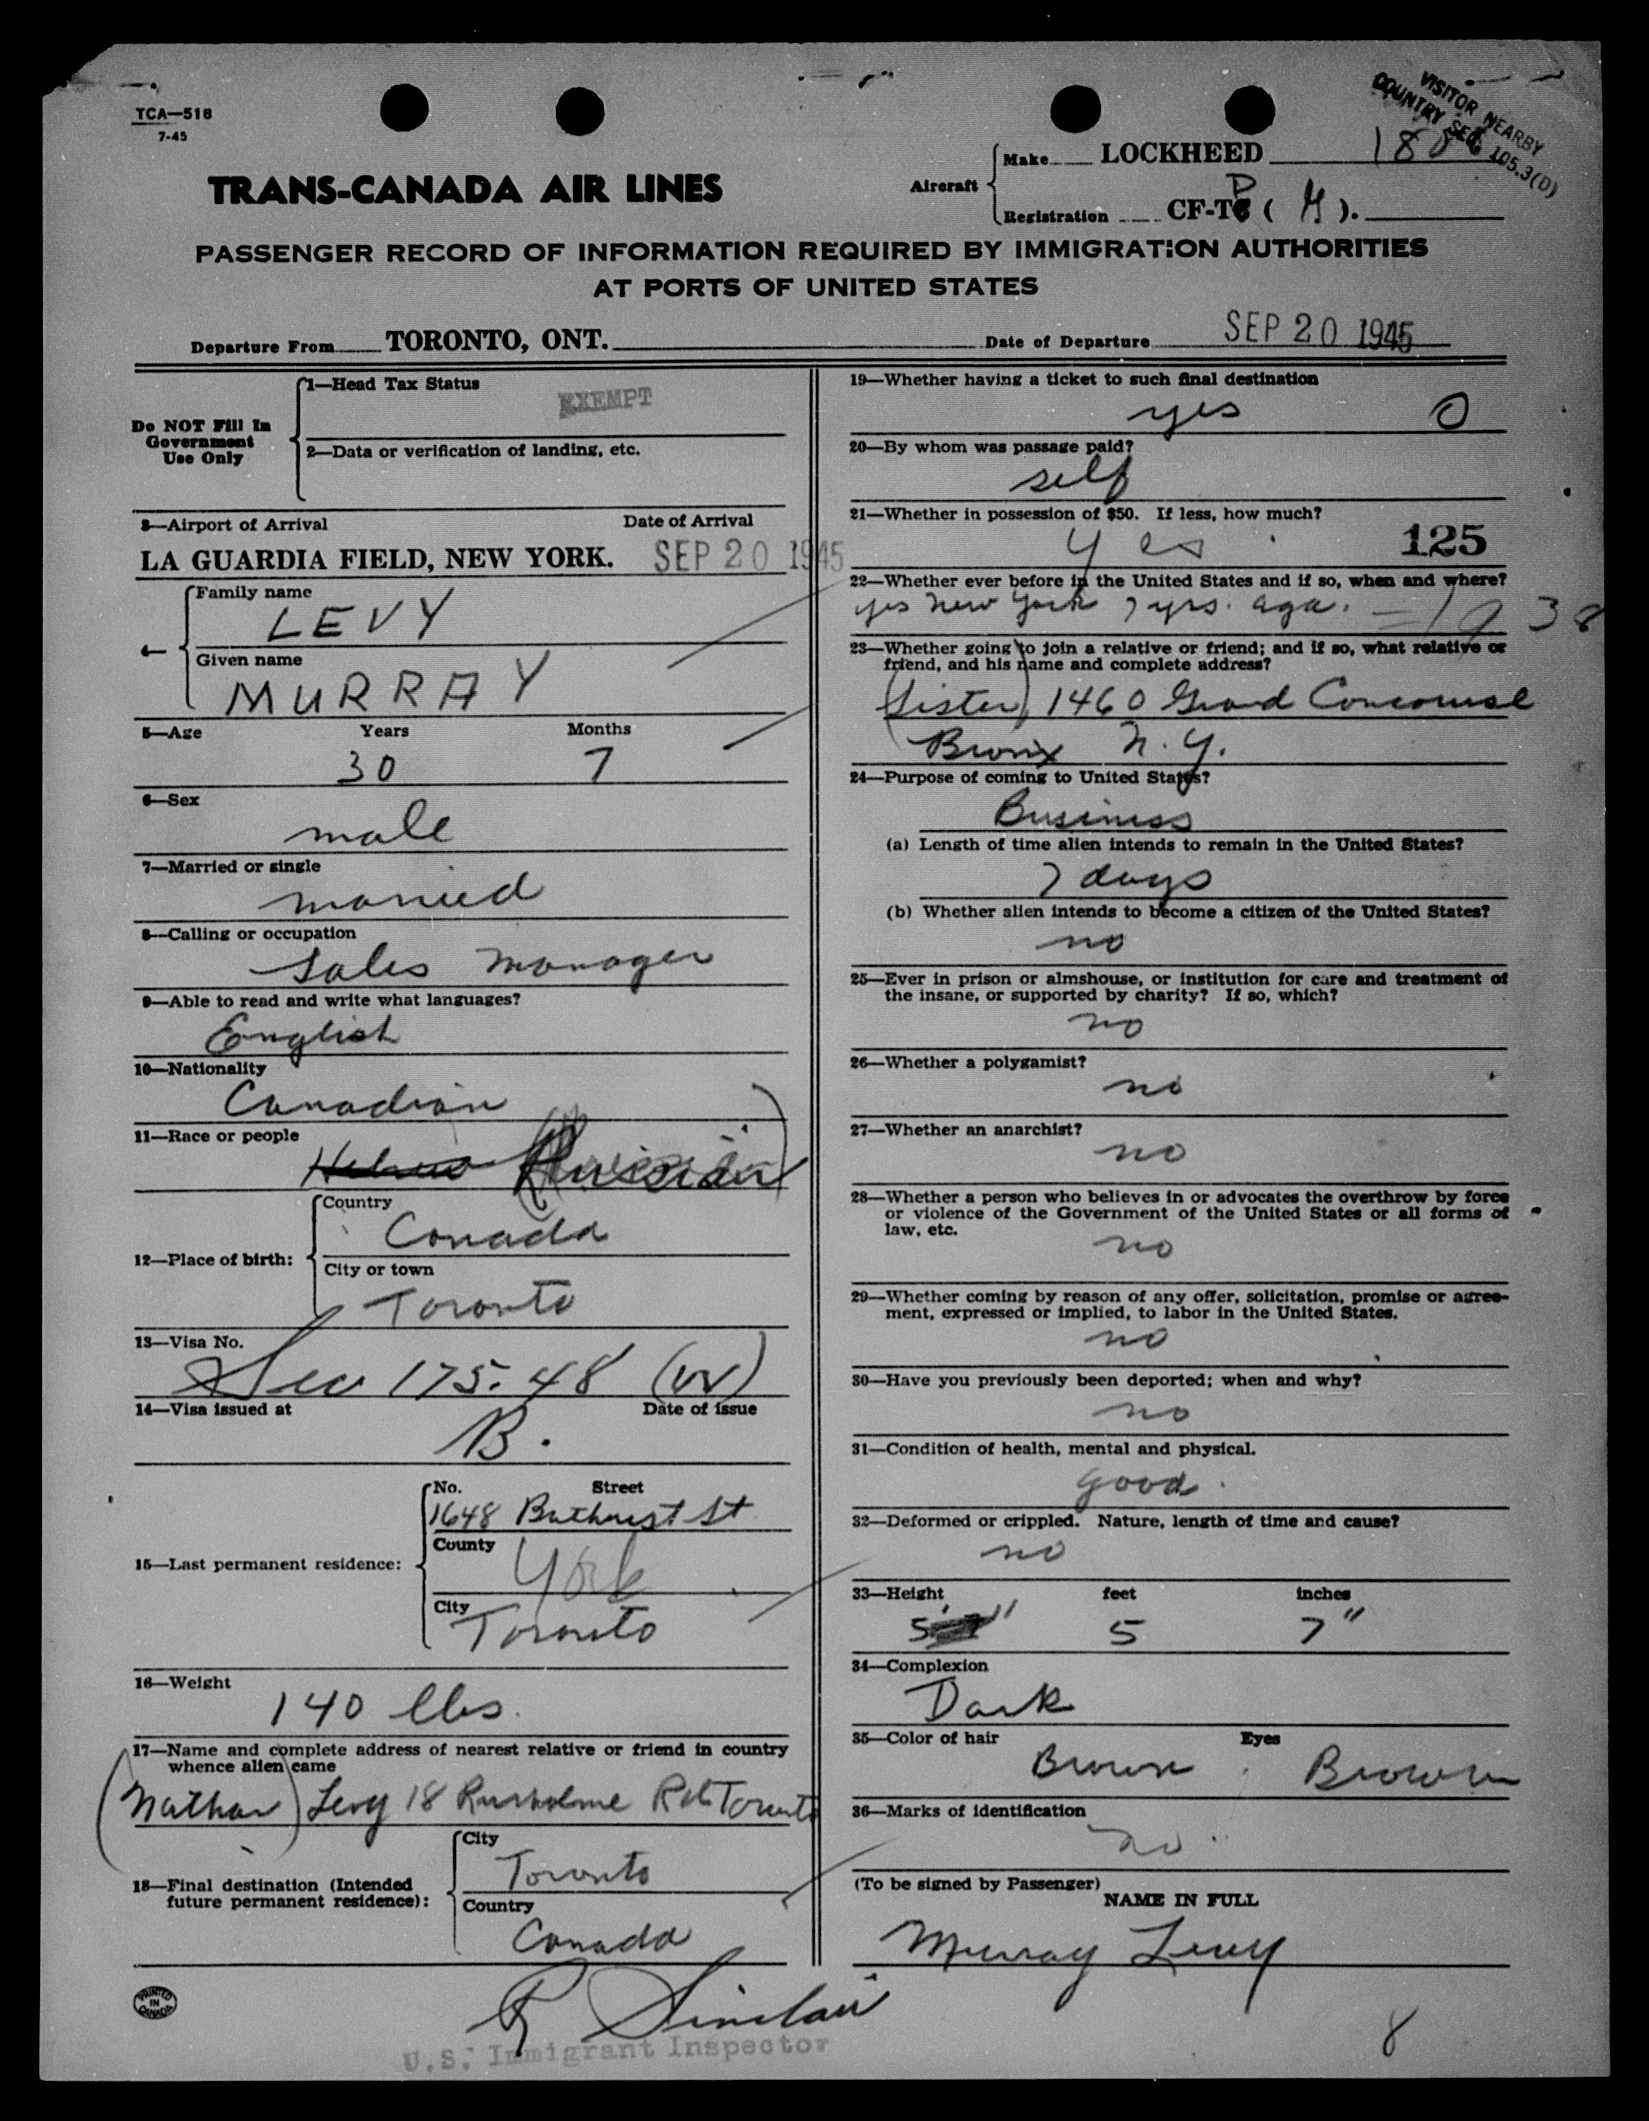 TCA—518
7-45
VISITOR NEARBY
COUNTRY SEC 105.3(D)
TRANS-CANADA AIR LINES
Aircraft
Make LOCKHEED
Registration CF-T ( M ).
PASSENGER RECORD OF INFORMATION REQUIRED BY IMMIGRATION AUTHORITIES
AT PORTS OF UNITED STATES
Departure From TORONTO, ONT.
Date of Departure SEP 20 1945
Do NOT Fill In
Government
Use Only
1—Head Tax Status
EXEMPT
2—Data or verification of landing, etc.
3—Airport of Arrival Date of Arrival
LA GUARDIA FIELD, NEW YORK. SEP 20 1945
4—
Family name
LEVY
Given name
MURRAY
5—Age Years Months
30 7
6—Sex
male
7—Married or single
married
8—Calling or occupation
Sales Manager
9—Able to read and write what languages?
English
10—Nationality
Canadian
11—Race or people
Hebrew Russian
12—Place of birth:
Country
Canada
City or town
Toronto
13—Visa No.
Sec 175.48
14—Visa issued at Date of issue
B.
15—Last permanent residence:
No. Street
1648 Bathurst St
County
York
City
Toronto
16—Weight
140 lbs.
17—Name and complete address of nearest relative or friend in country
whence alien came
(Nathan) Levy 18 Rusholme Rd Toronto
18—Final destination (Intended
future permanent residence):
City
Toronto
Country
Canada
19—Whether having a ticket to such final destination
yes 0
20—By whom was passage paid?
self
21—Whether in possession of $50. If less, how much?
yes 125
22—Whether ever before in the United States and if so, when and where?
yes New York 7 yrs. ago. = 1938
23—Whether going to join a relative or friend; and if so, what relative or
friend, and his name and complete address?
(Sister) 1460 Grand Concourse
Bronx N.Y.
24—Purpose of coming to United States?
Business
(a) Length of time alien intends to remain in the United States?
7 days
(b) Whether alien intends to become a citizen of the United States?
no
25—Ever in prison or almshouse, or institution for care and treatment of
the insane, or supported by charity? If so, which?
no
26—Whether a polygamist?
no
27—Whether an anarchist?
no
28—Whether a person who believes in or advocates the overthrow by force
or violence of the Government of the United States or all forms of
law, etc.
no
29—Whether coming by reason of any offer, solicitation, promise or agree-
ment, expressed or implied, to labor in the United States.
no
30—Have you previously been deported; when and why?
no
31—Condition of health, mental and physical.
good.
32—Deformed or crippled. Nature, length of time and cause?
no
33—Height feet inches
5 7"
34—Complexion
Dark
35—Color of hair Eyes
Brown Brown
36—Marks of identification
no
(To be signed by Passenger)
NAME IN FULL
Murray Levy
PRINTED
IN
CANADA
R Sinclair
U.S. Immigrant Inspector
8